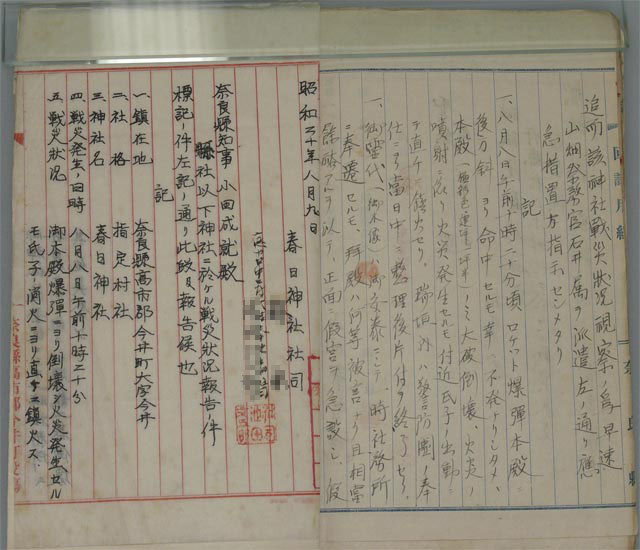 追而該神社戦災狀況視察ノ爲早速
山畑祭務官石井属ヲ派遣左ノ通リ應
急措置方指示センメタリ
記
一、八月八日午前十時二十分頃ロケット爆彈本殿ニ
後方斜ヨリ命中セルモ幸ニ不発ナリシタメ、
本殿ノミ大破倒壊、火炎ノ
噴射ニ依リ火災発生セルモ付近氏子ノ出動ニ
テ直チニ鎮火セリ、瑞垣内ハ警防團ノ奉
仕ニヨリ當日中ニ整理後片付ヲ終了セリ、
一、御霊代ハ御安泰ニシテ一時社務所
ニ奉遷セルモ、拜殿ハ何等被害ナク且相當
餘裕アルヲ以テ、正面ニ假宮ヲ急設シ、假
昭和二十年八月九日
春日神社社司
奈良縣知事 小田成就殿
縣社以下神社ニ於ケル戦災狀況報告ノ件
標記ノ件左記ノ通リ此段及報告候也
記
一、鎮在地 奈良縣高市郡今井町大字今井
二、社格 指定村社
三、神社名 春日神社
四、戦災発生ノ日時 八月八日午前十時二十分
五、戦災狀況 御本殿爆彈ニヨリ倒壊シ火災発生セル
モ氏子ノ消火ニヨリ直チニ鎮火ス